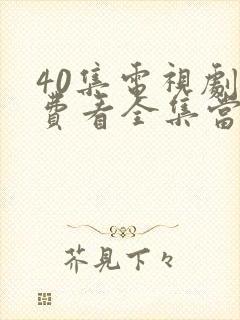 40集電視劇
費看全集當
芥見下々